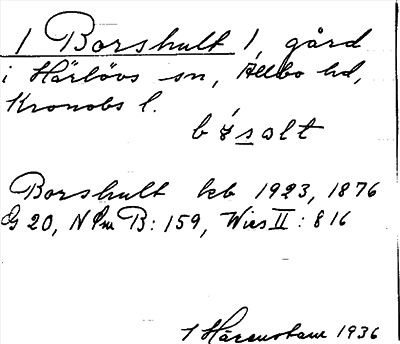 1 Borshult 1, gård
i Härlövs sn, Allbo hd,
Kronobs l.
Borshult kb 1923, 1876
G 20, N Sm B: 159, Wies II: 816
1936